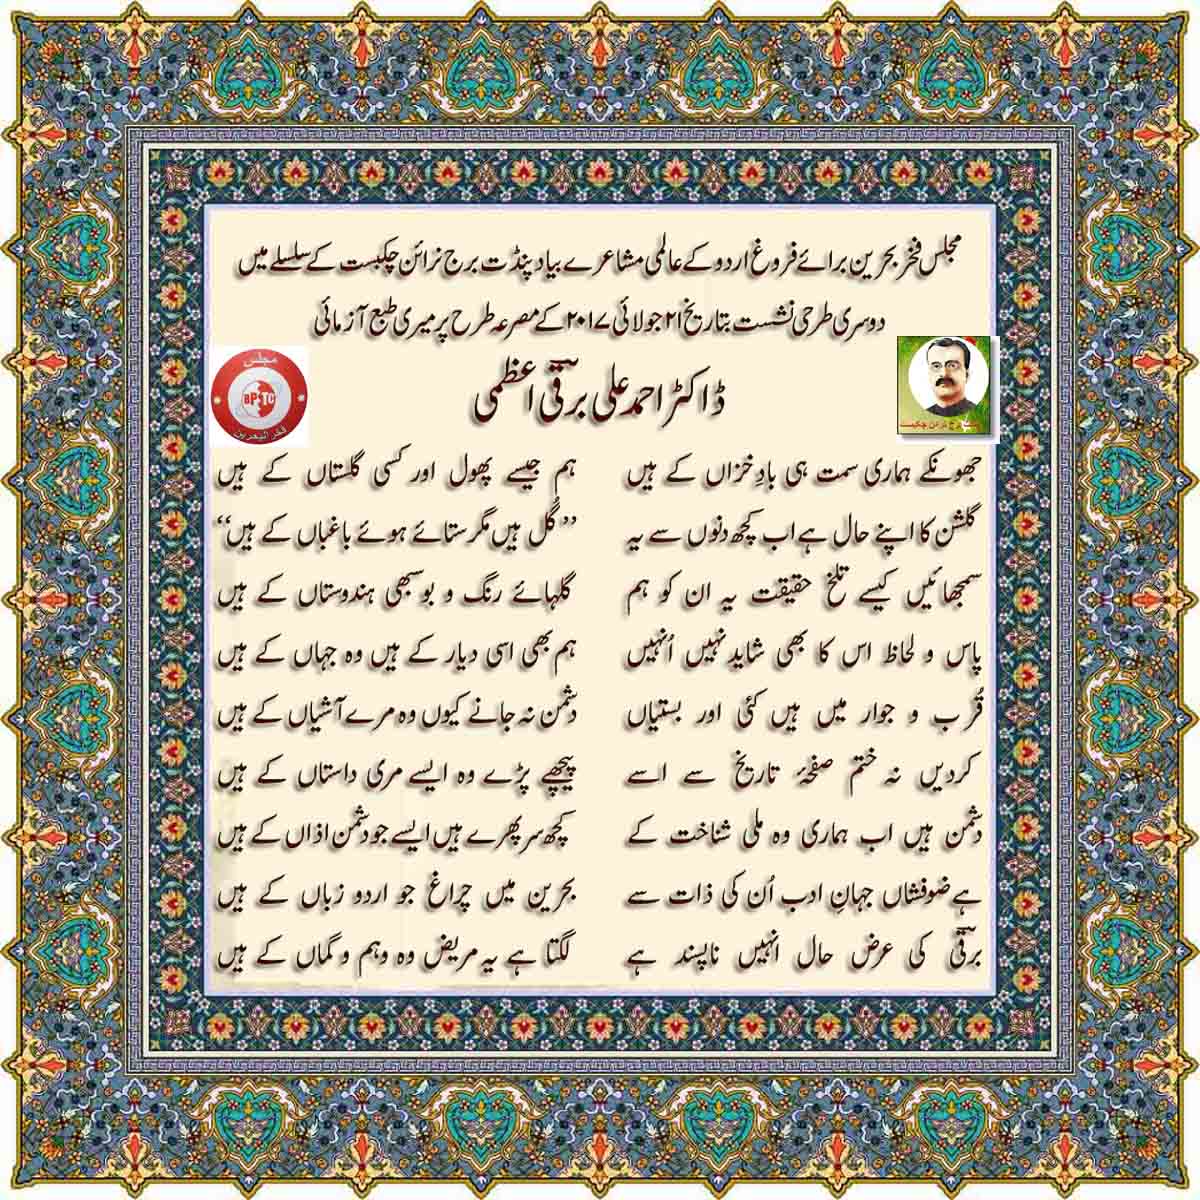 مجلس فخر بحرین برائے فروغ اردو کے عالمی مشاعرے بیاد پنڈت برج نرائن چکبست کے سلسلے میں
دوسری طرحی نشست بتاریخ ۲۱ جولائی ۲۰۱۷ کے مصرعہ طرح پر میری طبع آزمائی
مجلس
BPSTC
فخر البحرین
ڈاکٹر احمد علی برقیؔ اعظمی
برج نرائن چکبست
جھونکے ہماری سمت ہی بادِ خزاں کے ہیں ہم جیسے پھول اور کسی گلستاں کے ہیں
گلشن کا اپنے حال ہے اب کچھ دنوں سے یہ ’’گُل ہیں مگر ستائے ہوئے باغباں کے ہیں‘‘
سمجھائیں کیسے تلخ حقیقت یہ ان کو ہم گلہائے رنگ و بو سبھی ہندوستاں کے ہیں
پاس و لحاظ اس کا بھی شاید نہیں اُنہیں ہم بھی اسی دیار کے ہیں وہ جہاں کے ہیں
قُرب و جوار میں ہیں کئی اور بستیاں دشمن نہ جانے کیوں وہ مرے آشیاں کے ہیں
کردیں نہ ختم صفحۂ تاریخ سے اسے پیچھے پڑے وہ ایسے مری داستاں کے ہیں
دشمن ہیں اب ہماری وہ ملی شناخت کے کچھ سر پھرے ہیں ایسے جو دشمن اذاں کے ہیں
ہے ضوفشاں جہانِ ادب اُن کی ذات سے بحرین میں چراغ جو اردو زباں کے ہیں
برقیؔ کی عرض حال انہیں ناپسند ہے لگتا ہے یہ مریض وہ وہم و گماں کے ہیں